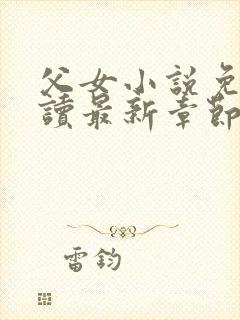 父女小説免
讀最新章節
雷鈞